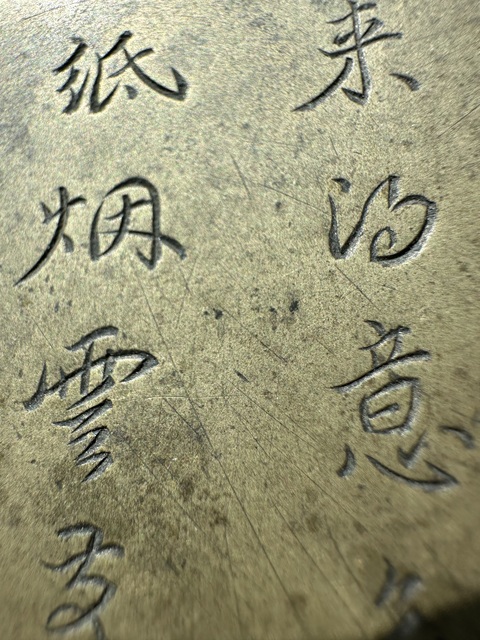 来得意
紙烟雲